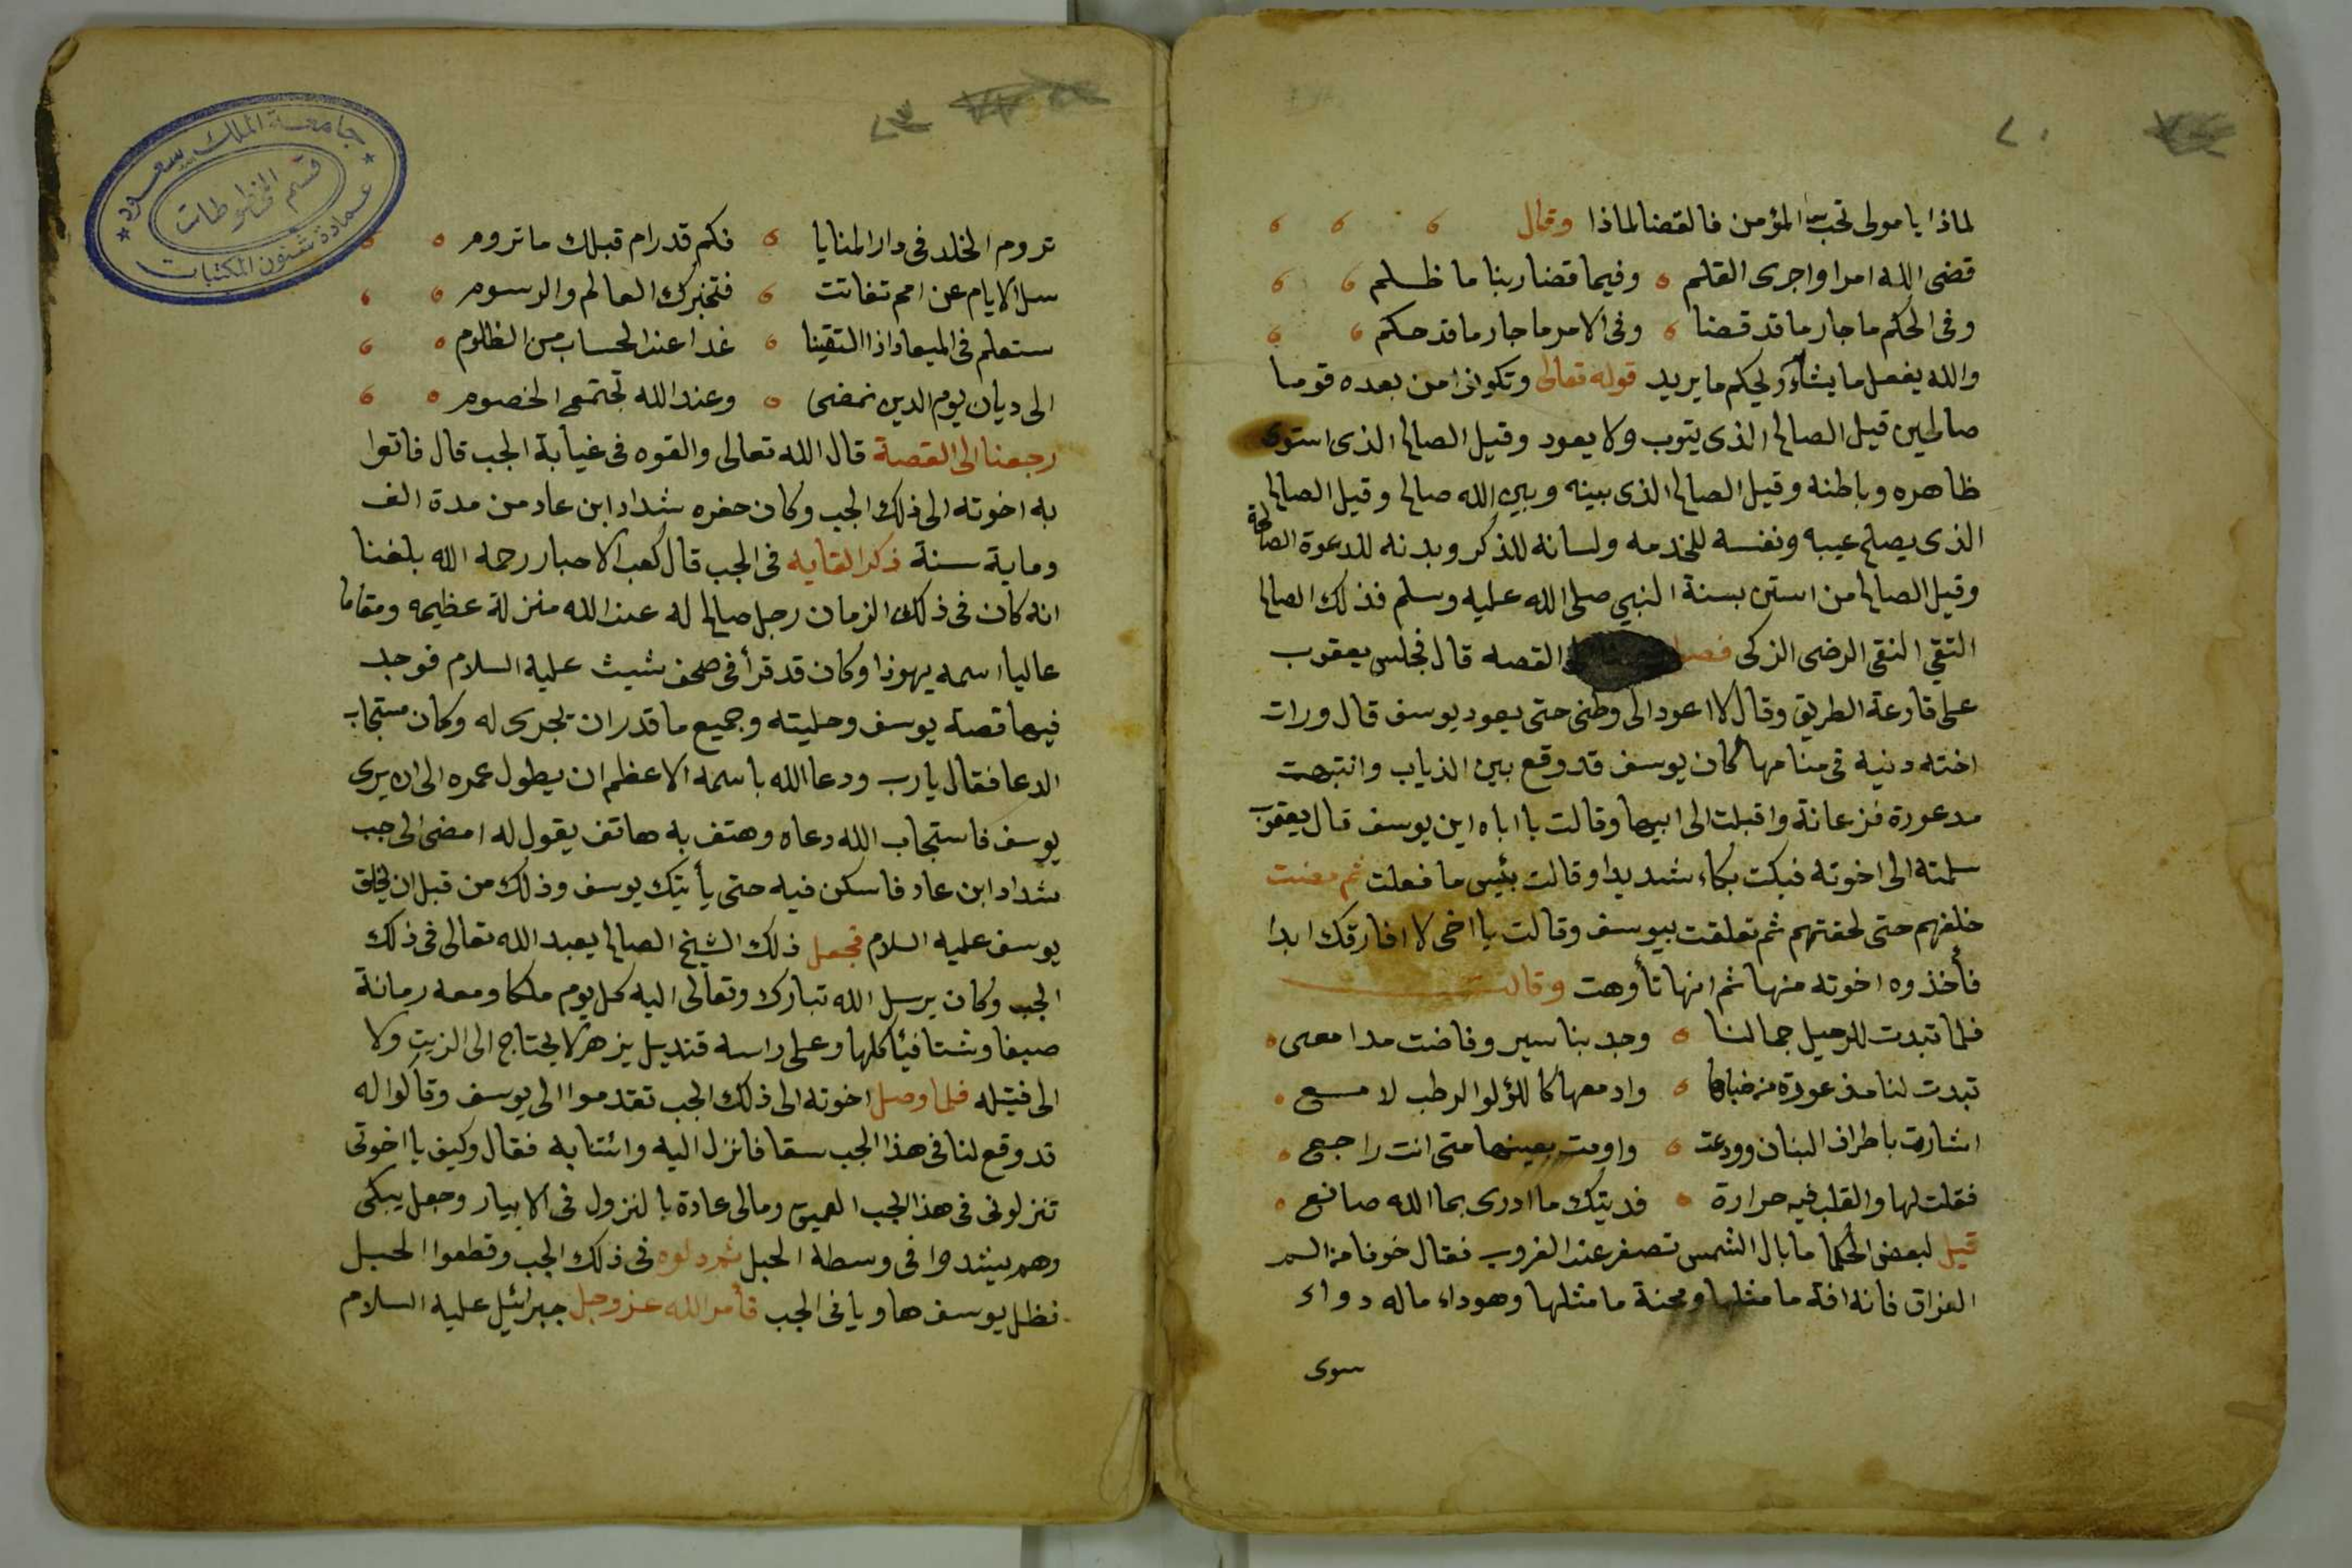 لماذا يا مولى تحب المؤمن فالقضا لماذا وقال
قضى الله امرا واجرى القلم وفيما قضا ربنا ما ظلم
وفى الحكم ما جار ما قد قضا وفى الامر ما جار ما قد حكم
والله يفعل ما يشاء ويحكم ما يريد قوله تعالى وتكونوا من بعده قوما
صالحين قيل الصالح الذى يتوب ولا يعود وقيل الصالح الذى استوى
ظاهره وباطنه وقيل الصالح الذى بينه وبين الله صالح وقيل الصالح
الذى يصلح عيبه ونفسه للخدمه ولسانه للذكر وبدنه للدعوة الصالحة
وقيل الصالح من استن بسنة النبي صلى الله عليه وسلم فذلك الصالح
التقي النقي الرضى الزكى القصه قال فجلس يعقوب
على قارعة الطريق وقال لا اعود الى وطنى حتى يعود يوسف قال ورات
اخته دنية فى منامها كان يوسف قد وقع بين الذياب وانتبهت
مدعورة فزعانة واقبلت الى ابيها وقالت يا اباه اين يوسف قال يعقوب
سلمته الى اخوته فبكت بكاء شديدا وقالت بئيس ما فعلت ثم مضت
خلفهم حتى لحقتهم ثم تعلقت بيوسف وقالت يا اخى لا افارقك ابدا
فأخذوه اخوته منها ثم انها تأوهت وقالت
فلما تبدت للرحيل جمالنا وجد بنا سير وفاضت مدامعى
تبدت لنا مذعورة من خباها وادمعها كاللؤلو الرطب لامع
اشارت باطراف البنان وودعت واومت بعينها متى انت راجع
فقلت لها والقلب فيه حرارة فديتك ما ادرى بما الله صانع
قيل لبعض الحكما ما بال الشمس تصفر عند الغروب فقال خوفا من الم
الفراق فانه افة ما مثلها ومحنة ما مثلها وهو داء ماله دواء
سوى
جامعة الملك سعود
قسم المخطوطات
عمادة شئون المكتبات
تروم الخلد فى دار المنايا فكم قد رام قبلك ما تروم
سل الايام عن امم تفانت فتخبرك المعالم والرسوم
ستعلم فى الميعاد اذا التقينا غدا عند الحساب من الظلوم
الى ديان يوم الدين نمضى وعند الله تجتمع الخصوم
رجعنا الى القصة قال الله تعالى والقوه فى غيابة الجب قال فاتوا
به اخوته الى ذلك الجب وكان حفره شداد ابن عاد من مدة الف
وماية سنة ذكر القايه فى الجب قال كعب الاحبار رحمه الله بلغنا
انه كان فى ذلك الزمان رجل صالح له عند الله منزلة عظيمه ومقاما
عاليا اسمه يهوذا وكان قد قرأ فى صحف شيث عليه السلام فوجد
فيها قصة يوسف وحليته وجميع ما قدر ان يجرى له وكان مستجاب
الدعا فقال يا رب ودعا الله باسمه الاعظم ان يطول عمره الى ان يرى
يوسف فاستجاب الله دعاه وهتف به هاتف يقول له امضى الى جب
شداد ابن عاد فاسكن فيه حتى يأتيك يوسف وذلك من قبل ان يخلق
يوسف عليه السلام فجعل ذلك الشيخ الصالح يعبد الله تعالى فى ذلك
الجب وكان يرسل الله تبارك وتعالى اليه كل يوم ملكا ومعه رمانة
صيفا وشتا فيأكلها وعلى راسه قنديل يزهر لا يحتاج الى الزيت ولا
الى فتيله فلما وصل اخوته الى ذلك الجب تقدموا الى يوسف وقالوا له
قد وقع لنا فى هذا الجب سقا فانزل اليه وائتنا به فقال وكيف يا اخوتى
تنزلونى فى هذا الجب العميق ومالى عادة بالنزول فى الابيار وجعل يبكى
وهم يشدوا فى وسطه الحبل ثم دلوه فى ذلك الجب وقطعوا الحبل
فظل يوسف هاويا فى الجب فأمر الله عز وجل جبرائيل عليه السلام